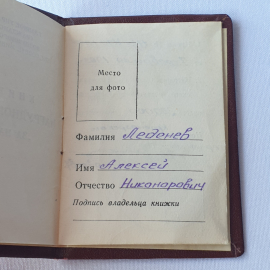 Место
для фото
Фамилия Ледонев
Имя Алексей
Отчество Никанорович
Подпись владельца книжки